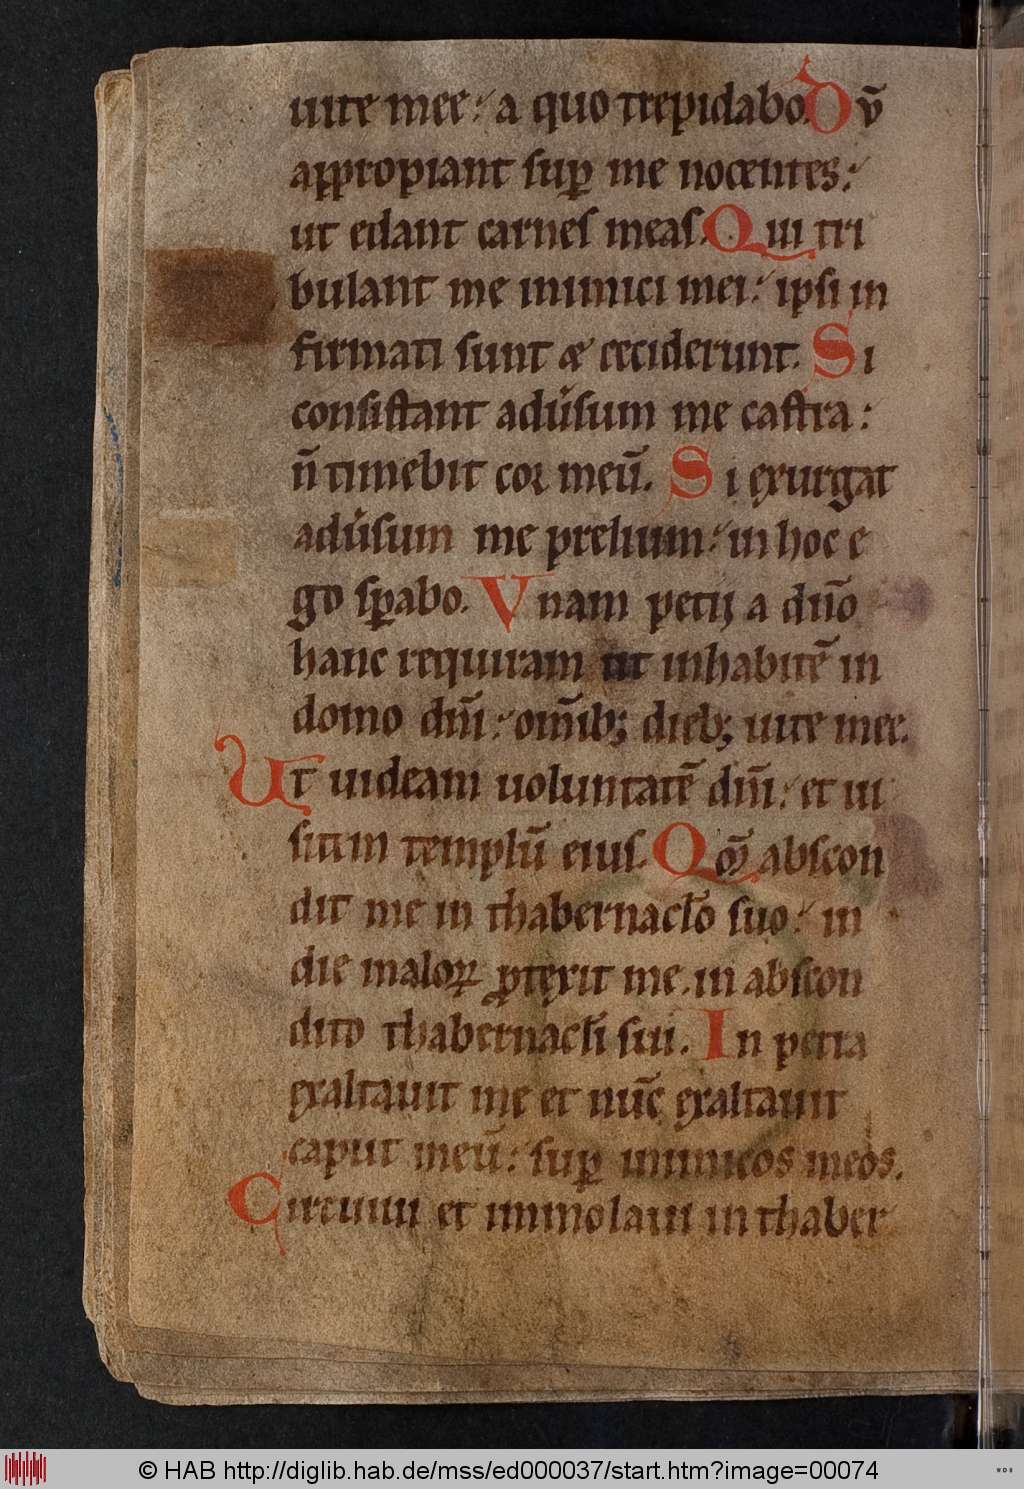 uite mee: a quo trepidabo. Dũ
appropiant sup me nocentes:
ut edant carnes meas. Qui tri
bulant me inimici mei: ipsi in
firmati sunt & ceciderunt. Si
consistant adũsum me castra:
ñ timebit cor meũ. Si exurgat
adũsum me prelium: in hoc e
go sꝑabo. Vnam petij a dño
hanc requiram ut inhabitẽ in
domo dñi: om̃ib; dieb; uite mee.
Ut uideam uoluntatẽ dñi: et ui
sitem templũ eius. Qm̃ abscon
dit me in thabernacl̃o suo: in
die maloꝝ ꝓtexit me. in abscon
dito thabernacl̃i sui. In petra
exaltauit me et nũc exaltauit
caput meũ: suꝑ inimicos meos.
Circuiui et immolaui in thaber
© HAB http://diglib.hab.de/mss/ed000037/start.htm?image=00074